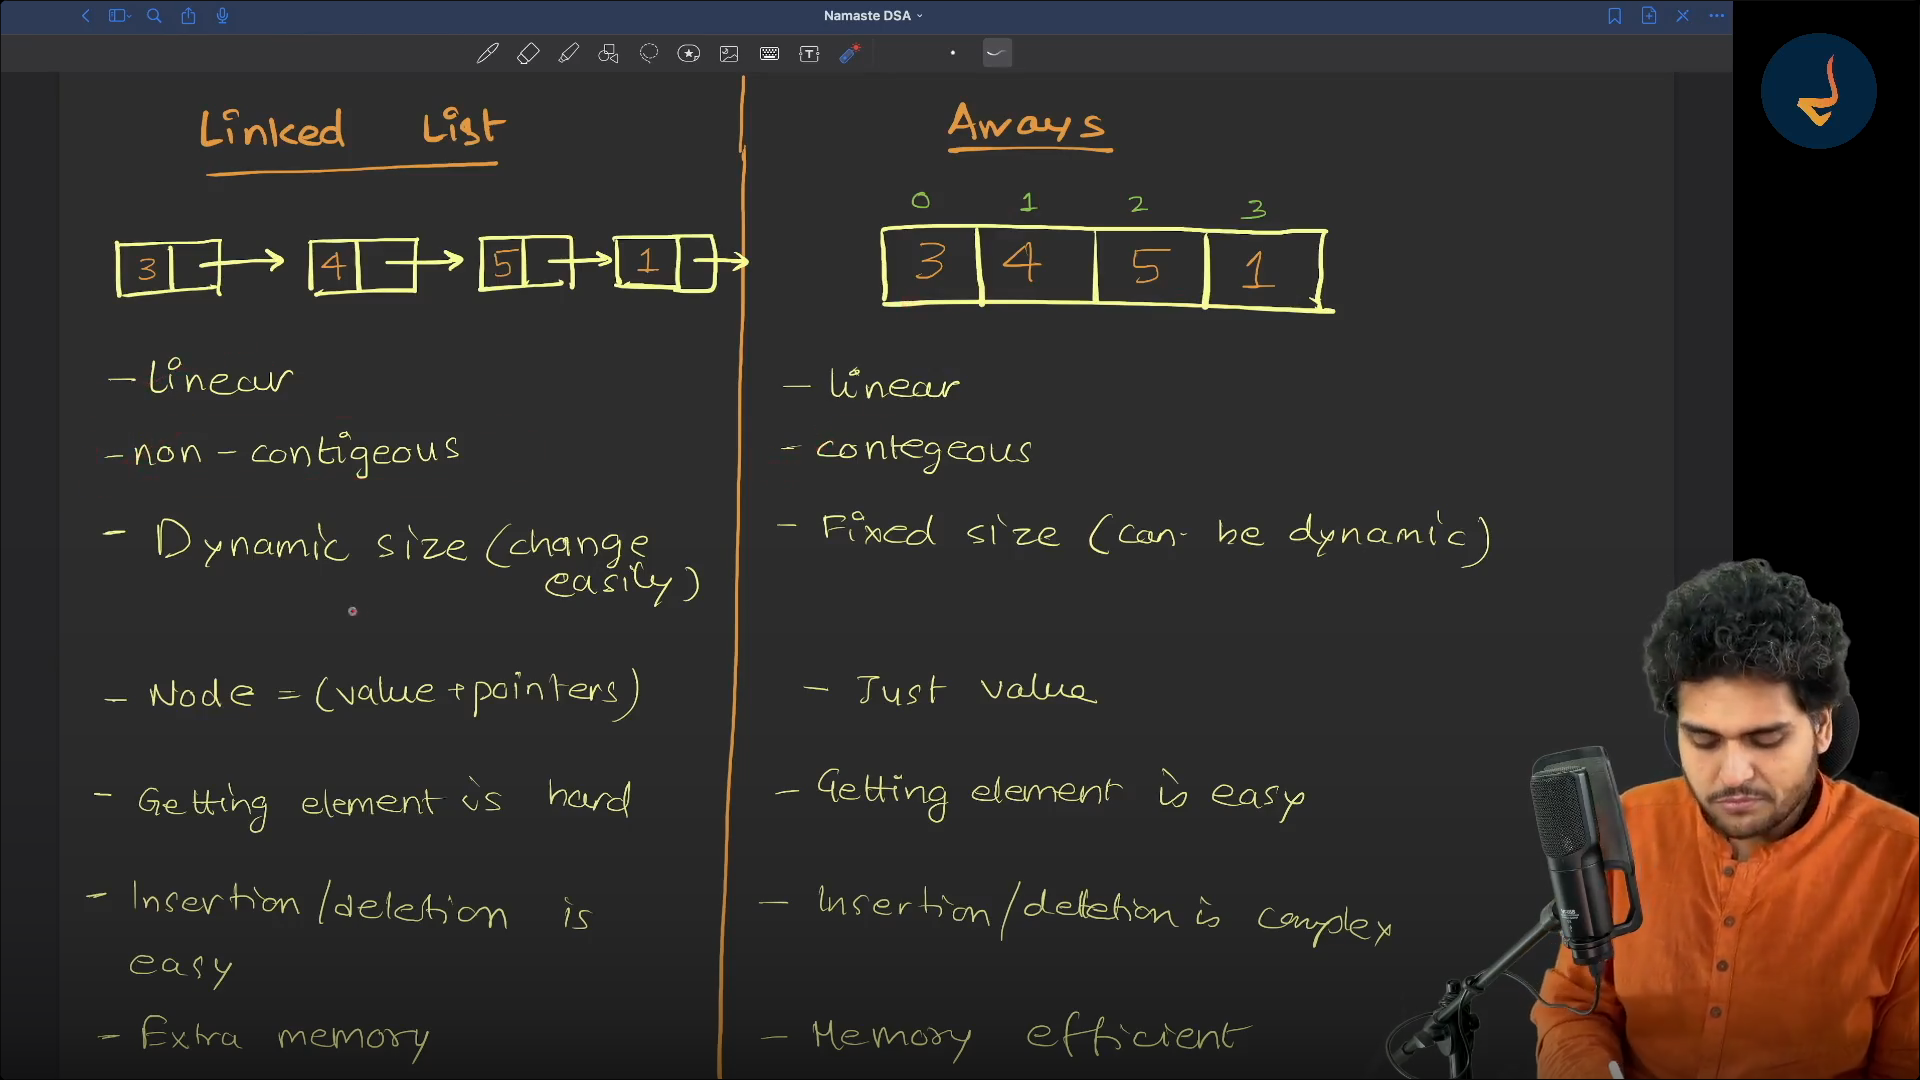 Namaste DSA
Linked List
3 4 5 1
- Linear
- non - contigeous
- Dynamic size (change
easily)
- Node = (value + pointers)
- Getting element is hard
- Insertion/deletion is
easy
- Extra memory
Arrays
0 1 2 3
3 4 5 1
- linear
- contegeous
- Fixed size (can be dynamic)
- Just value
- Getting element is easy
- Insertion/deletion is complex
- Memory efficient